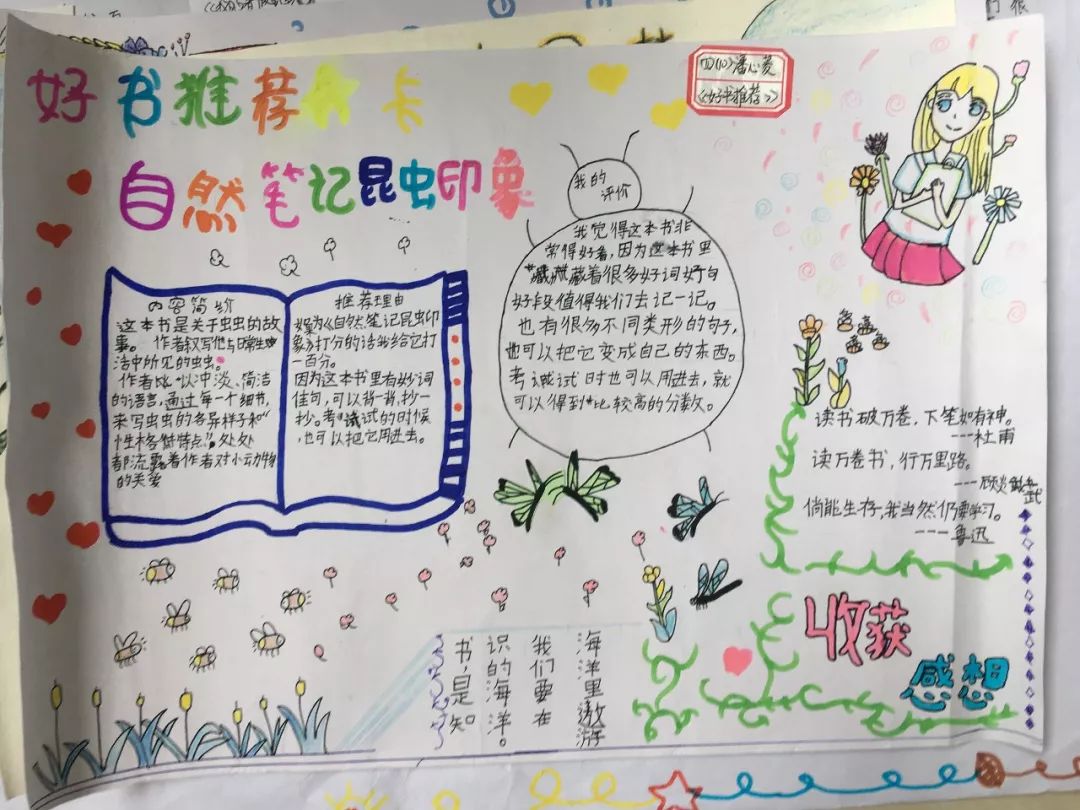 好书推荐卡
四(10)潘心菱
《好书推荐》
自然笔记昆虫印象
内容简价
这本书是关于虫虫的故
事。作者叙写他与日常生
洁中所见的虫虫。
作者以冲淡、简洁
的语言,通过每一个细节,
来写虫虫的各异样子和“
性格特点”,处处
都流露着作者对小动物
的关爱
推荐理由
如为《自然笔记昆虫印
象》打分的话我给它打
一百分。
因为这本书里有妙词
佳句,可以背一背,抄一
抄。考试的时候
,也可以把它用进去。
我的
评价
我觉得这本书非
常得好看,因为这本书里
藏着很多好词好句
好段值得我们去记一记。
也有很多不同类形的句子,
也可以把它变成自己的东西。
考试时也可以用进去,就
可以得到比较高的分数。
读书破万卷,下笔如有神。
---杜甫
读万卷书,行万里路。
---顾炎武
倘能生存,我当然仍要学习。
---鲁迅
收获
感想
书,是知
识的海洋。
我们要在
海洋里遨游